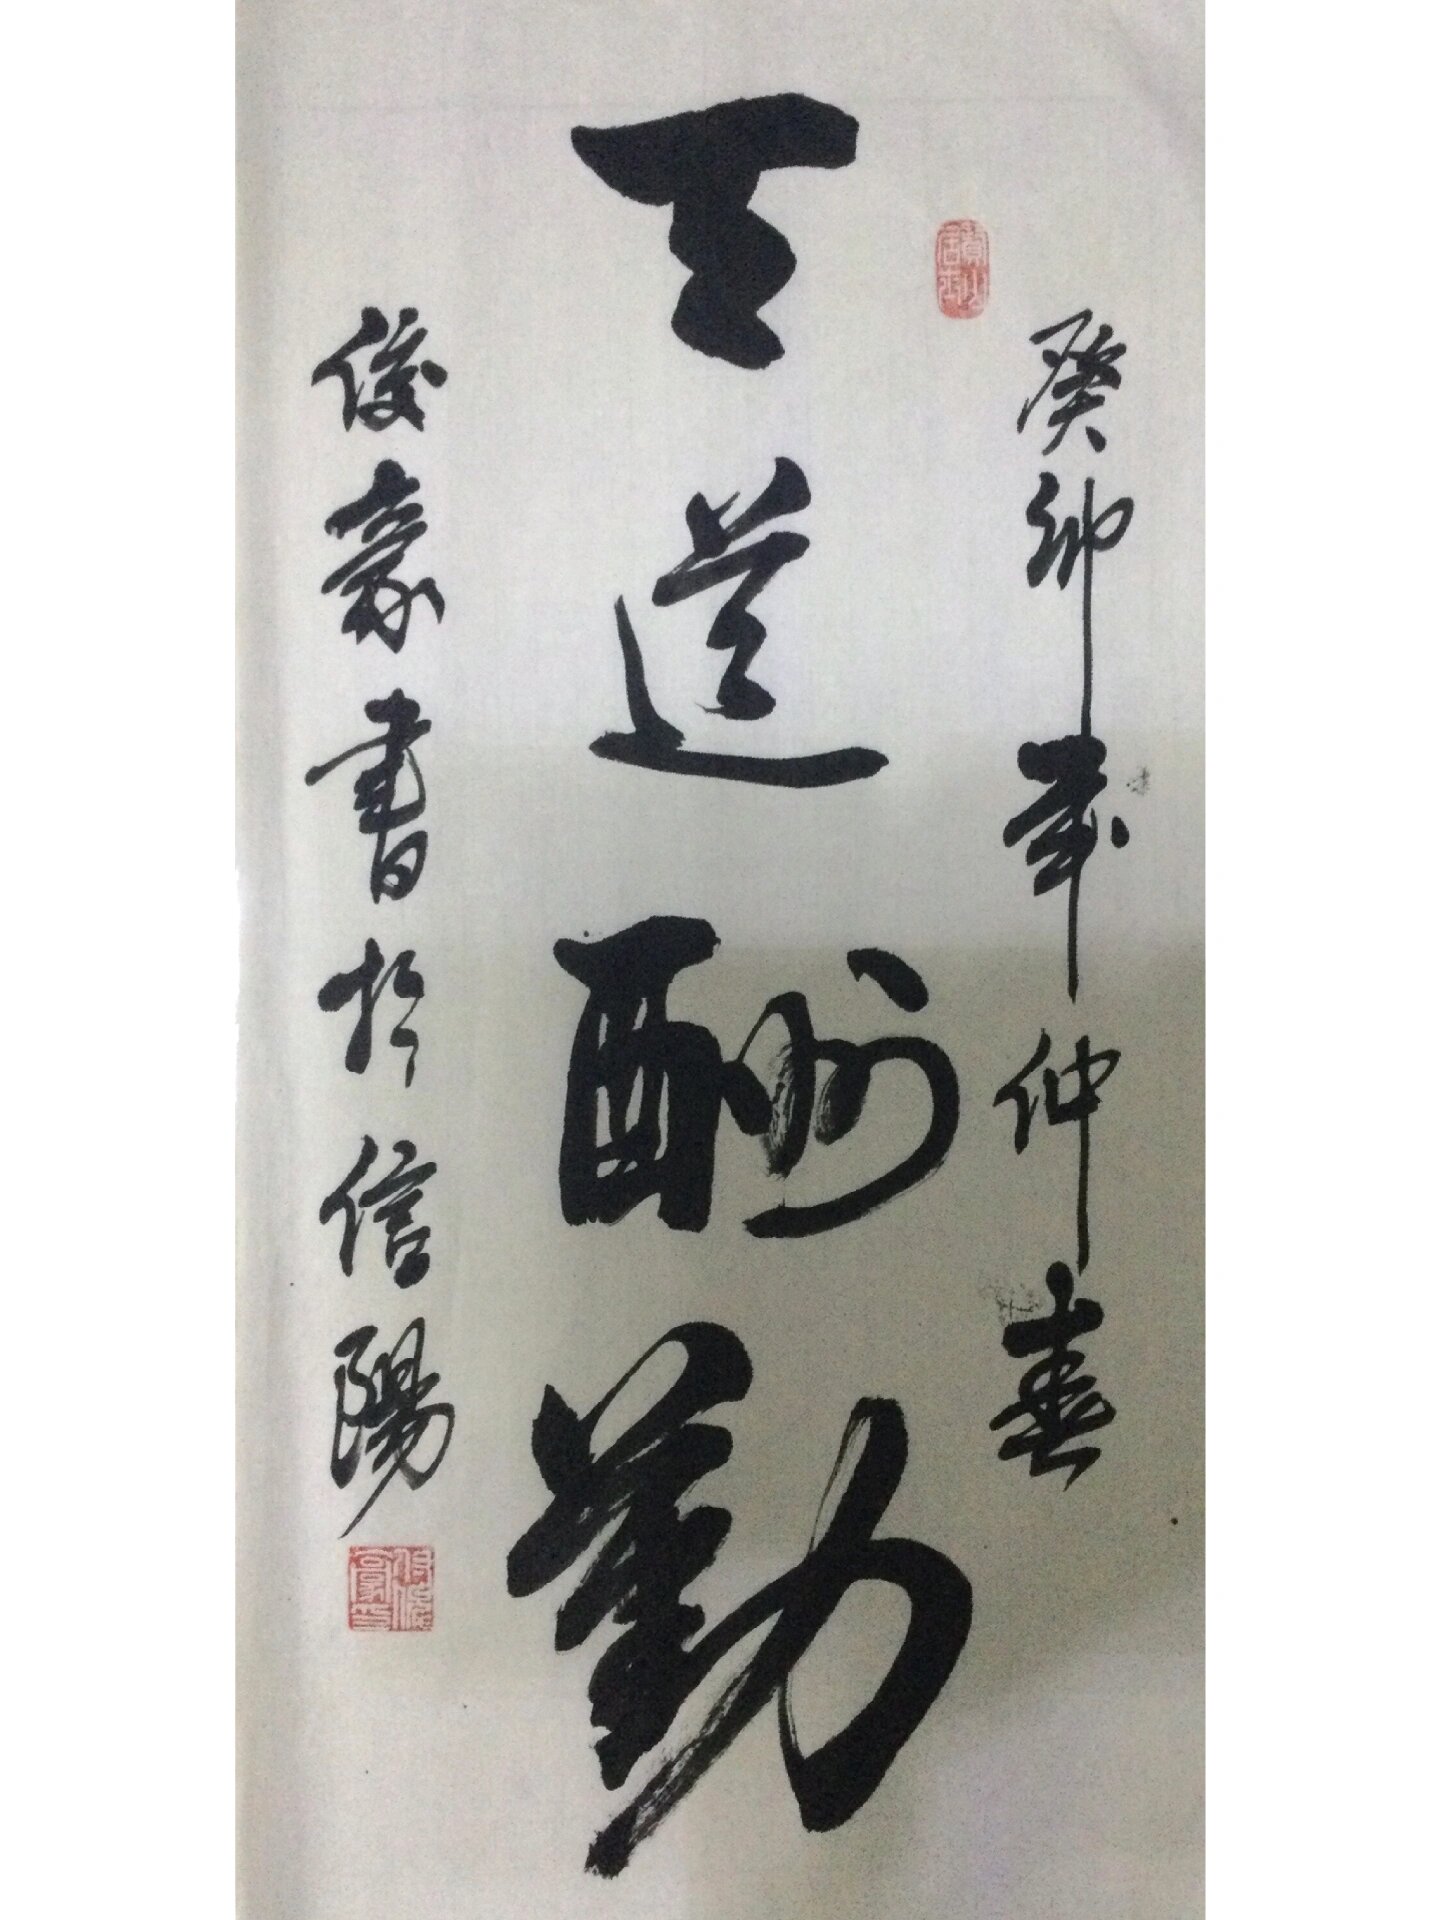 癸卯年仲春
天道酬勤
俊豪書於信陽